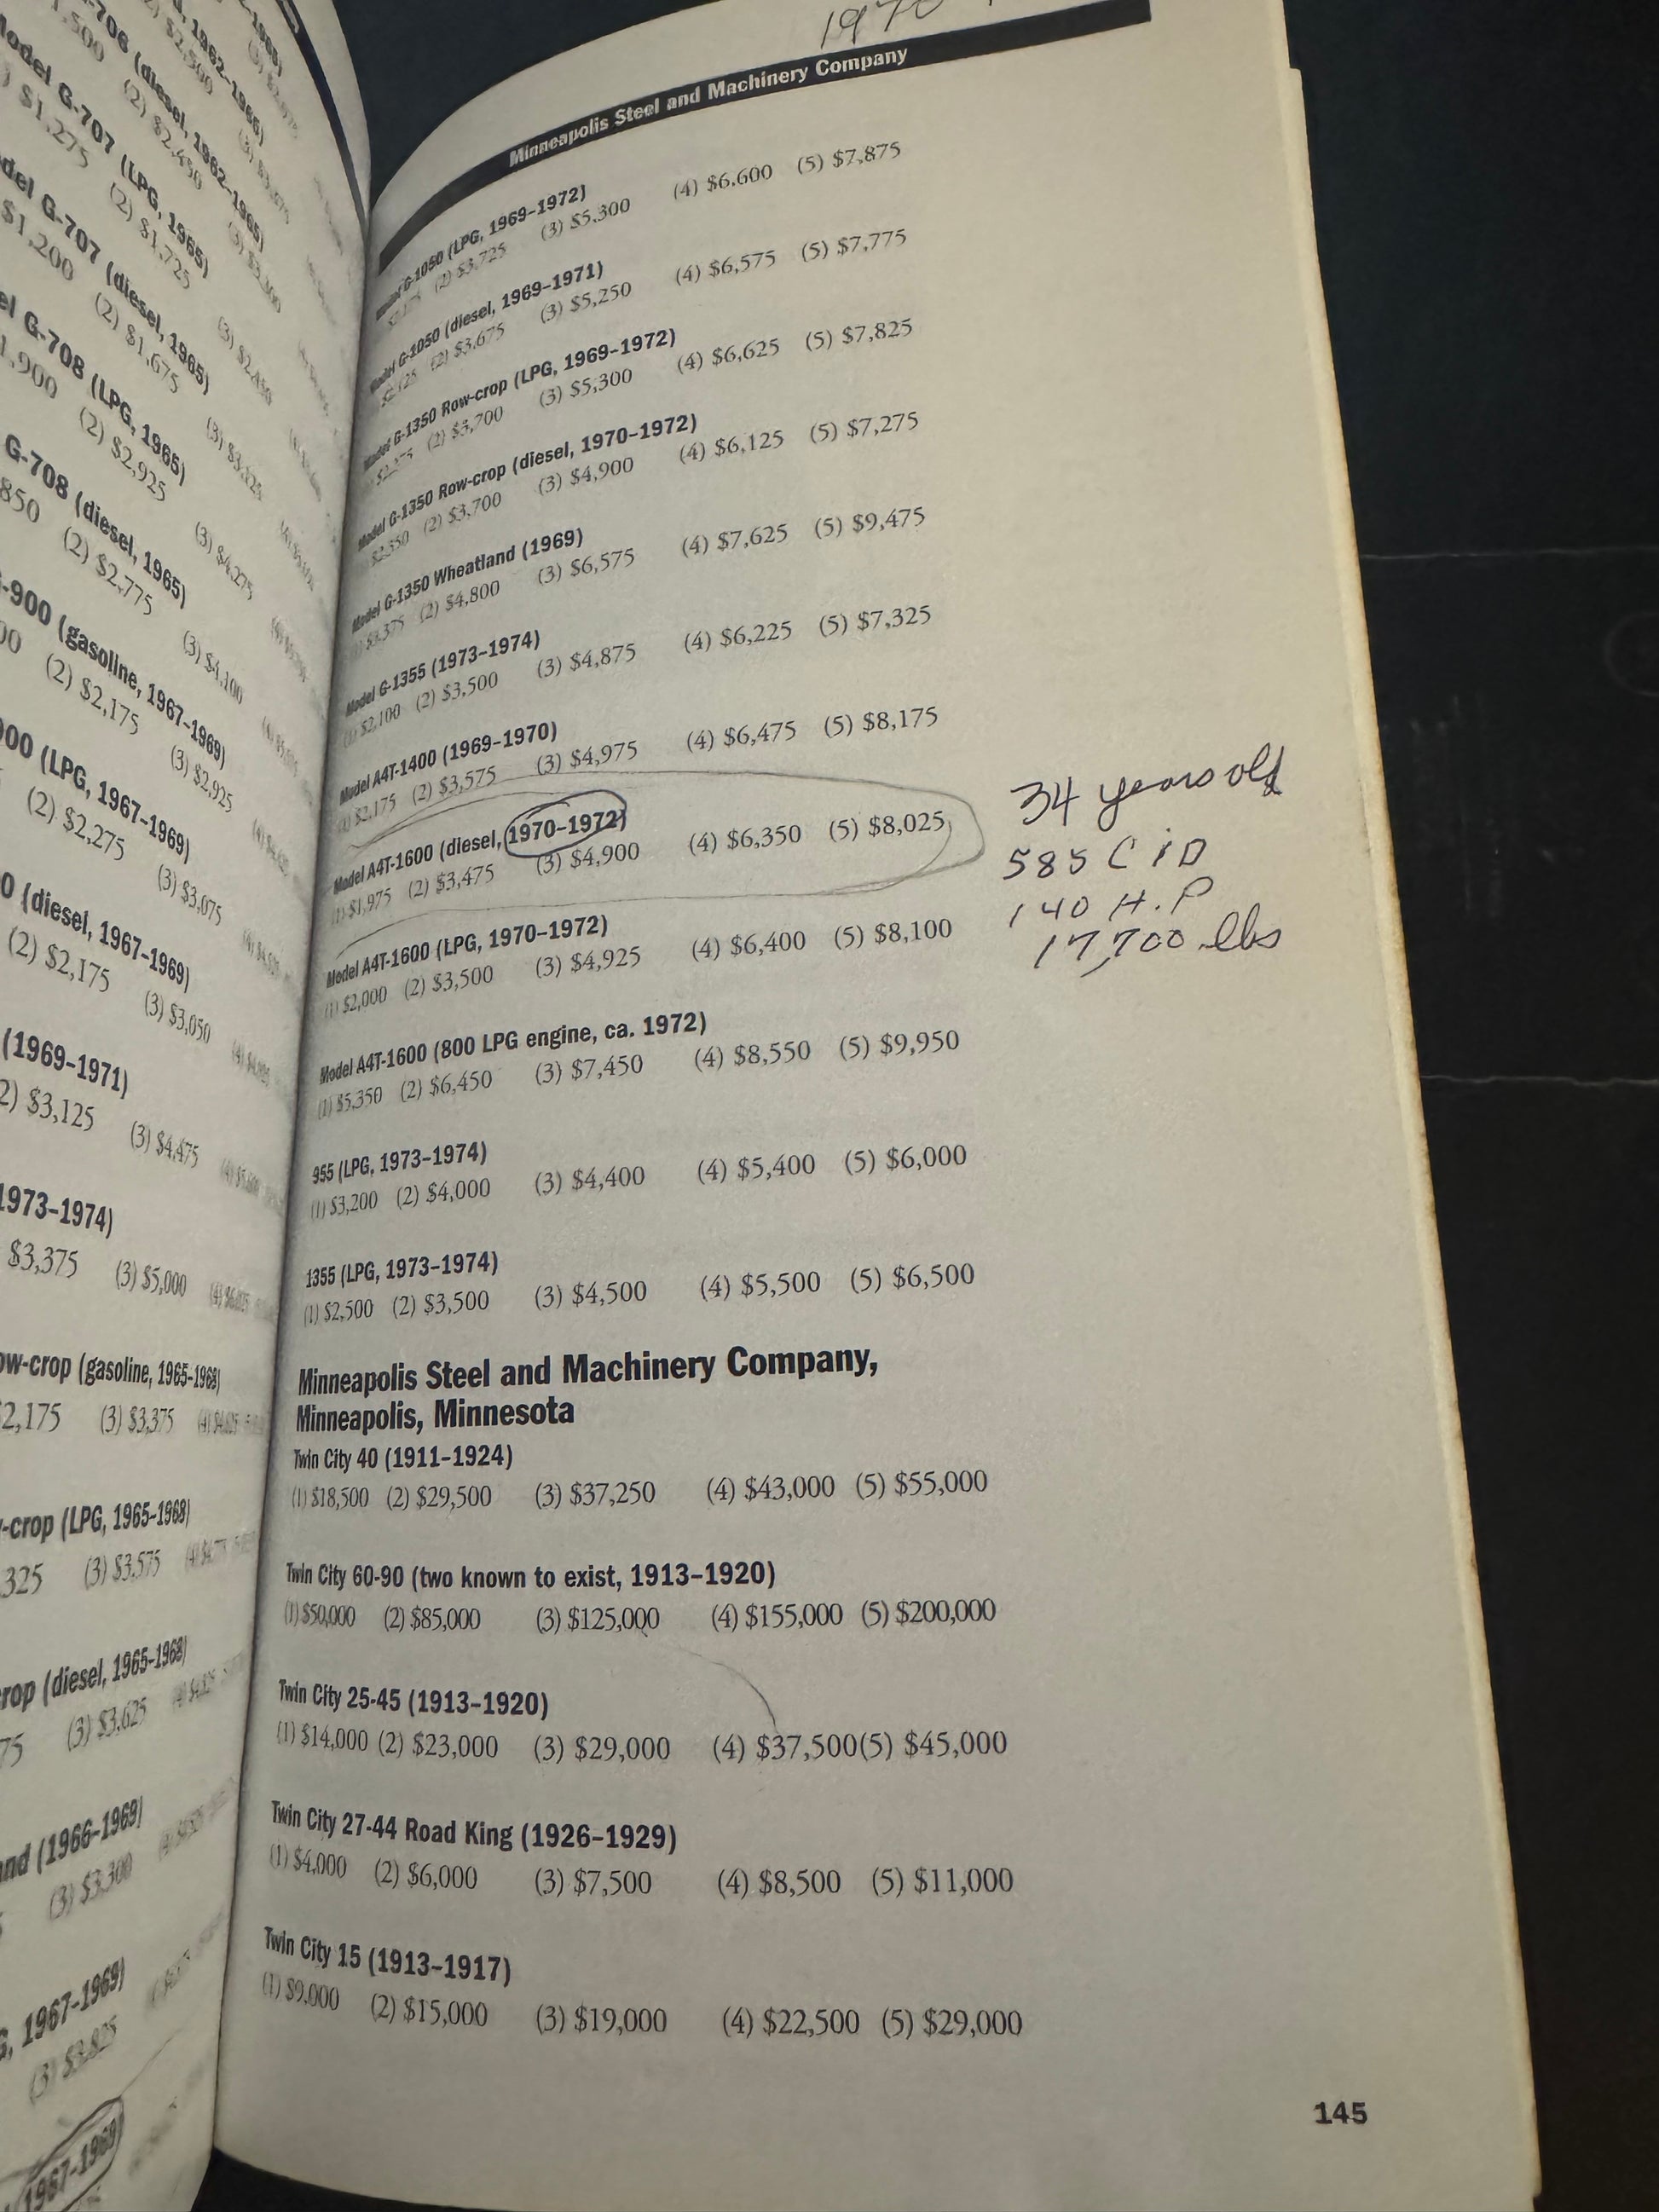 -706 (diesel, 1962-1965)
Model G-707 (LPG, 1965)
$1,275 (2) $1,725
del G-707 (diesel, 1965)
$1,200 (2) $1,675 (3) $2,450
el G-708 (LPG, 1965)
1,900 (2) $2,925
G-708 (diesel, 1965)
850 (2) $2,775 (3) $4,100
-900 (gasoline, 1967–1969)
00 (2) $2,175 (3) $2,925
900 (LPG, 1967–1969)
(2) $2,275 (3) $3,075
0 (diesel, 1967–1969)
(2) $2,175 (3) $3,050
(1969–1971)
2) $3,125 (3) $4,475
1973–1974)
$3,375 (3) $5,000
ow-crop (gasoline, 1965-1968)
2,175 (3) $3,375
-crop (LPG, 1965-1968)
325 (3) $3,575
rop (diesel, 1965-1968)
75 (3) $3,625
and (1966-1969)
(3) $3,300
, 1967-1969)
(3) $3,825
1967-1969)
1970
Minneapolis Steel and Machinery Company
Model G-1050 (LPG, 1969–1972)
(2) $3,725 (3) $5,300 (4) $6,600 (5) $7,875
Model G-1050 (diesel, 1969–1971)
$2,125 (2) $3,675 (3) $5,250 (4) $6,575 (5) $7,775
Model G-1350 Row-crop (LPG, 1969–1972)
$2,375 (2) $3,700 (3) $5,300 (4) $6,625 (5) $7,825
Model G-1350 Row-crop (diesel, 1970–1972)
$2,350 (2) $3,700 (3) $4,900 (4) $6,125 (5) $7,275
Model G-1350 Wheatland (1969)
(1) $3,375 (2) $4,800 (3) $6,575 (4) $7,625 (5) $9,475
Model G-1355 (1973–1974)
(1) $2,100 (2) $3,500 (3) $4,875 (4) $6,225 (5) $7,325
Model A4T-1400 (1969–1970)
(1) $2,175 (2) $3,575 (3) $4,975 (4) $6,475 (5) $8,175
Model A4T-1600 (diesel, 1970–1972)
(1) $1,975 (2) $3,475 (3) $4,900 (4) $6,350 (5) $8,025
34 years old
585 CiD
140 H.P
17,700 lbs
Model A4T-1600 (LPG, 1970–1972)
(1) $2,000 (2) $3,500 (3) $4,925 (4) $6,400 (5) $8,100
Model A4T-1600 (800 LPG engine, ca. 1972)
(1) $5,350 (2) $6,450 (3) $7,450 (4) $8,550 (5) $9,950
955 (LPG, 1973–1974)
(1) $3,200 (2) $4,000 (3) $4,400 (4) $5,400 (5) $6,000
1355 (LPG, 1973–1974)
(1) $2,500 (2) $3,500 (3) $4,500 (4) $5,500 (5) $6,500
Minneapolis Steel and Machinery Company,
Minneapolis, Minnesota
Twin City 40 (1911–1924)
(1) $18,500 (2) $29,500 (3) $37,250 (4) $43,000 (5) $55,000
Twin City 60-90 (two known to exist, 1913–1920)
(1) $50,000 (2) $85,000 (3) $125,000 (4) $155,000 (5) $200,000
Twin City 25-45 (1913–1920)
(1) $14,000 (2) $23,000 (3) $29,000 (4) $37,500(5) $45,000
Twin City 27-44 Road King (1926–1929)
(1) $4,000 (2) $6,000 (3) $7,500 (4) $8,500 (5) $11,000
Twin City 15 (1913–1917)
(1) $9,000 (2) $15,000 (3) $19,000 (4) $22,500 (5) $29,000
145